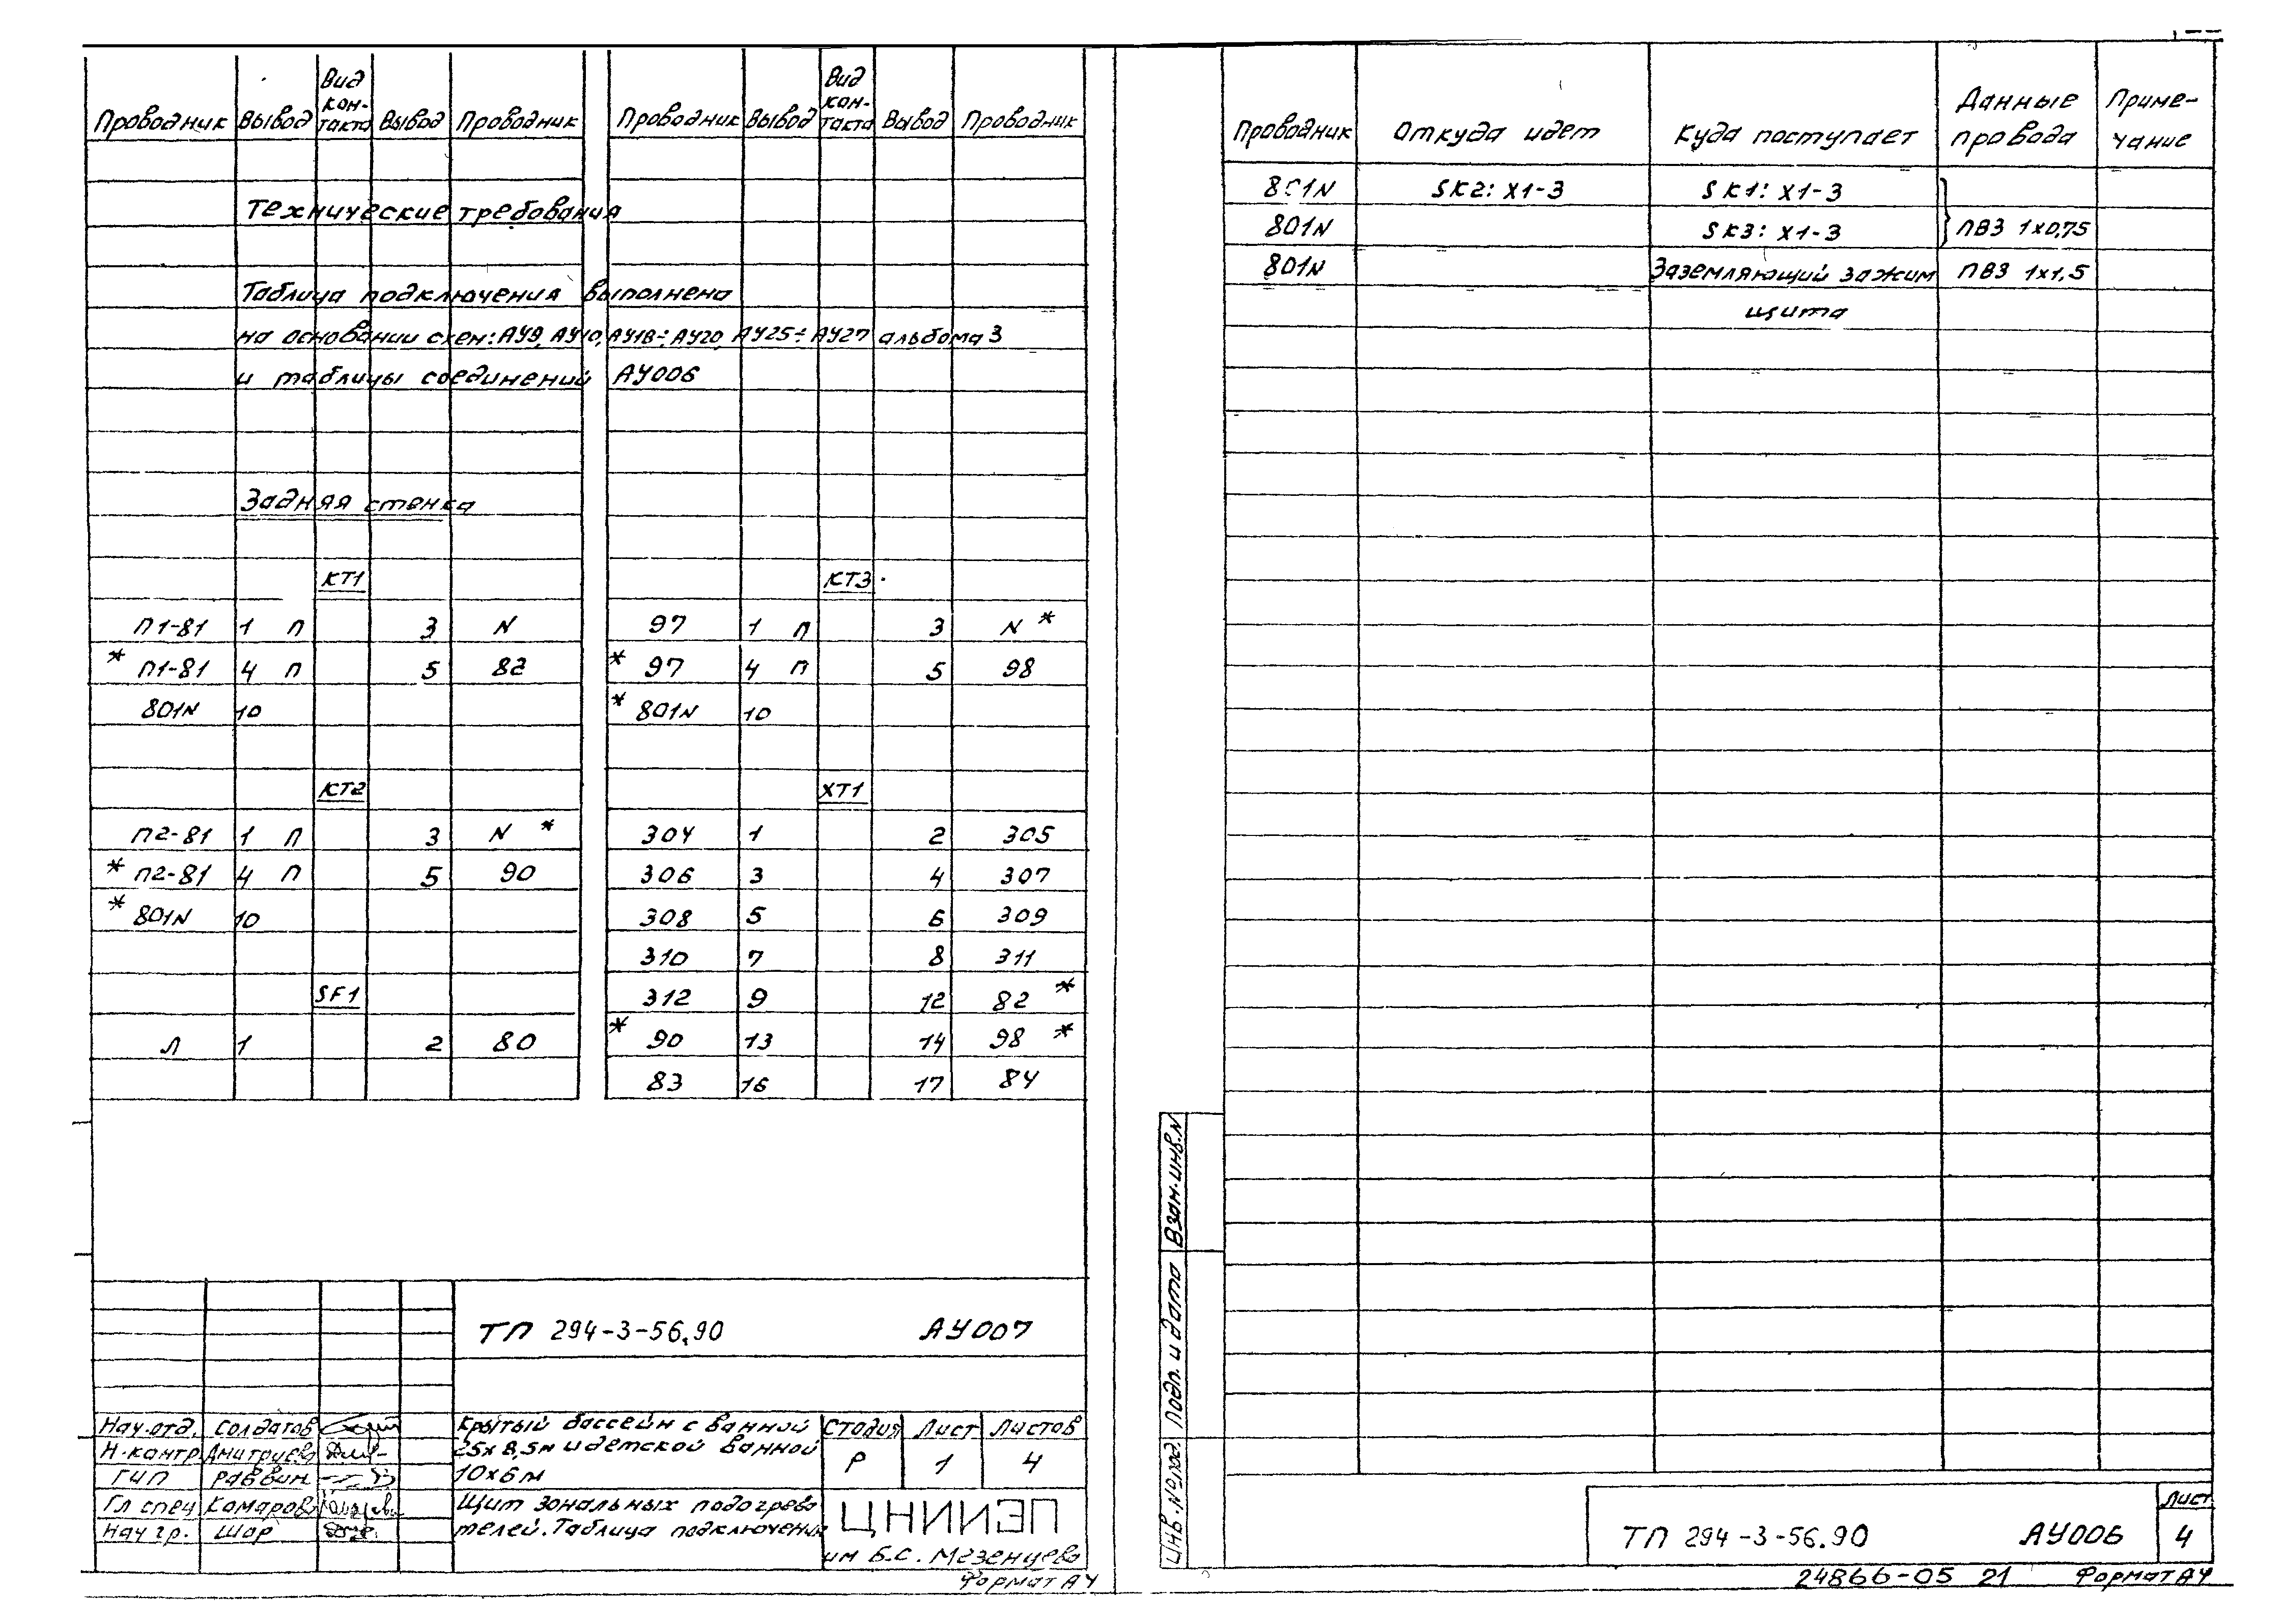 Проводник Вывод Вид контакта Вывод Проводник
Технические требования
Таблица подключения выполнена
на основании схем: АУ9, АУ10, АУ18÷АУ20, АУ25÷АУ27 альбома 3
и таблицы соединений АУ006
Задняя стенка
КТ1
П1-81 1 П 3 N
* П1-81 4 П 5 82
801N 10
КТ2
П2-81 1 П 3 N *
* П2-81 4 П 5 90
* 801N 10
SF1
Л 1 2 80
Проводник Вывод Вид контакта Вывод Проводник
КТ3
97 1 П 3 N *
* 97 4 П 5 98
* 801N 10
ХТ1
304 1 2 305
306 3 4 307
308 5 6 309
310 7 8 311
312 9 12 82 *
* 90 13 14 98 *
83 16 17 84
ТП 294-3-56.90 АУ007
Нач.отд. Солдатов
Н.контр. Дмитриева
ГИП Раввин
Гл спец Комарова
Нач гр. Шор
Крытый бассейн с ванной
25х8,5м и детской ванной
10х6м
Стадия Лист Листов
Р 1 4
Щит зональных подогрева
телей. Таблица подключения
ЦНИИЭП
им Б.С. Мезенцева
Формат А4
Проводник Откуда идет Куда поступает Данные провода Приме-
чание
801N SK2: X1-3 SK1: X1-3
801N SK3: X1-3 ПВ3 1х0,75
801N Заземляющий зажим ПВ3 1х1,5
щита
Взам.инв.N
Подп. и дата
Инв.№ подл
ТП 294-3-56.90 АУ006
Лист
4
24866-05 21 Формат А4